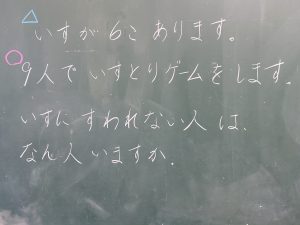 いすが6こあります。
9人でいすとりゲームをします。
いすにすわれない人は、
なん人いますか。